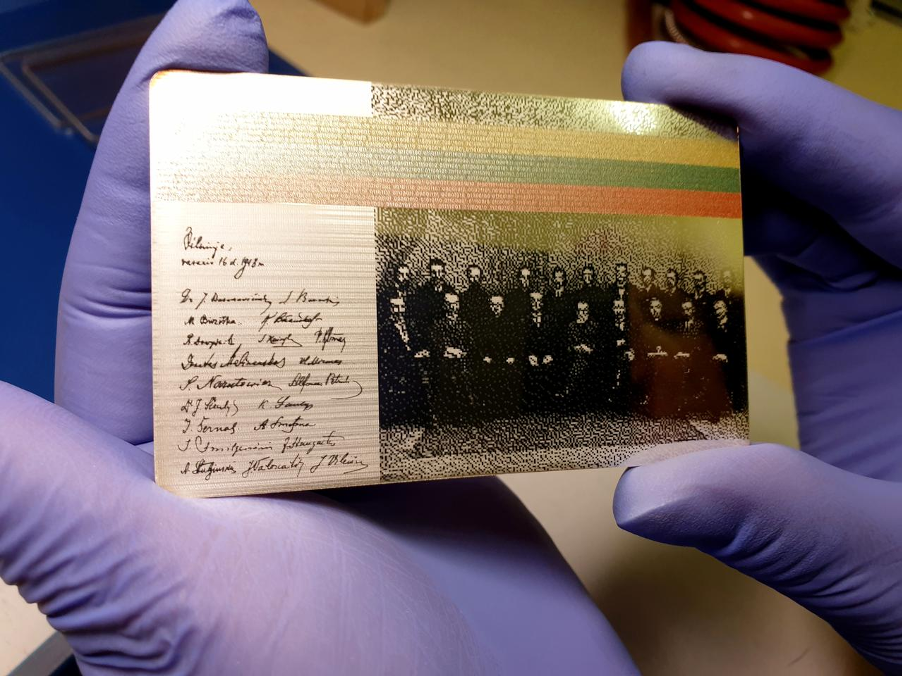 Vilniuje,
vasario 16 d. 1918 m.
Dr. J. Basanavičius S. Banaitis
M. Biržiška K. Bizauskas
P. Dovydaitis S. Kairys P. Klimas
Donatas Malinauskas Vl. Mironas
S. Narutowicz Alfonsas Petrulis
Dr J. Šaulys K. Šaulys
J. Šernas A. Smetona
J. Smilgevičius J. Staugaitis
A. Stulginskis J. Vailokaitis J. Vileišis